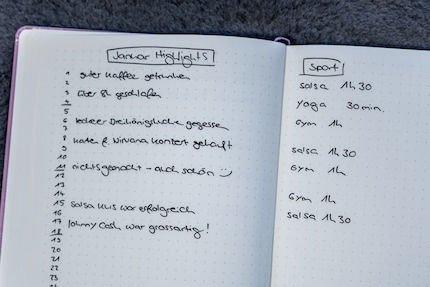 Januar Highlights
1 guter Kaffee getrunken
2
3 über 8h geschlafen
4
5
6 leckeer Dreikönigskuche gegessen
7
8 Karte f. Nirvana Konzert gekauft
9
10
11 nichts gemacht – auch schön :)
12
13
14
15 Salsa Kurs war erfolgreich
16
17 Johnny Cash war grossartig!
18
19
20
21
22
23
Sport
Salsa 1h 30
Yoga 30 min.
Gym 1h
Salsa 1h 30
Gym 1h
Gym 1h
Salsa 1h 30